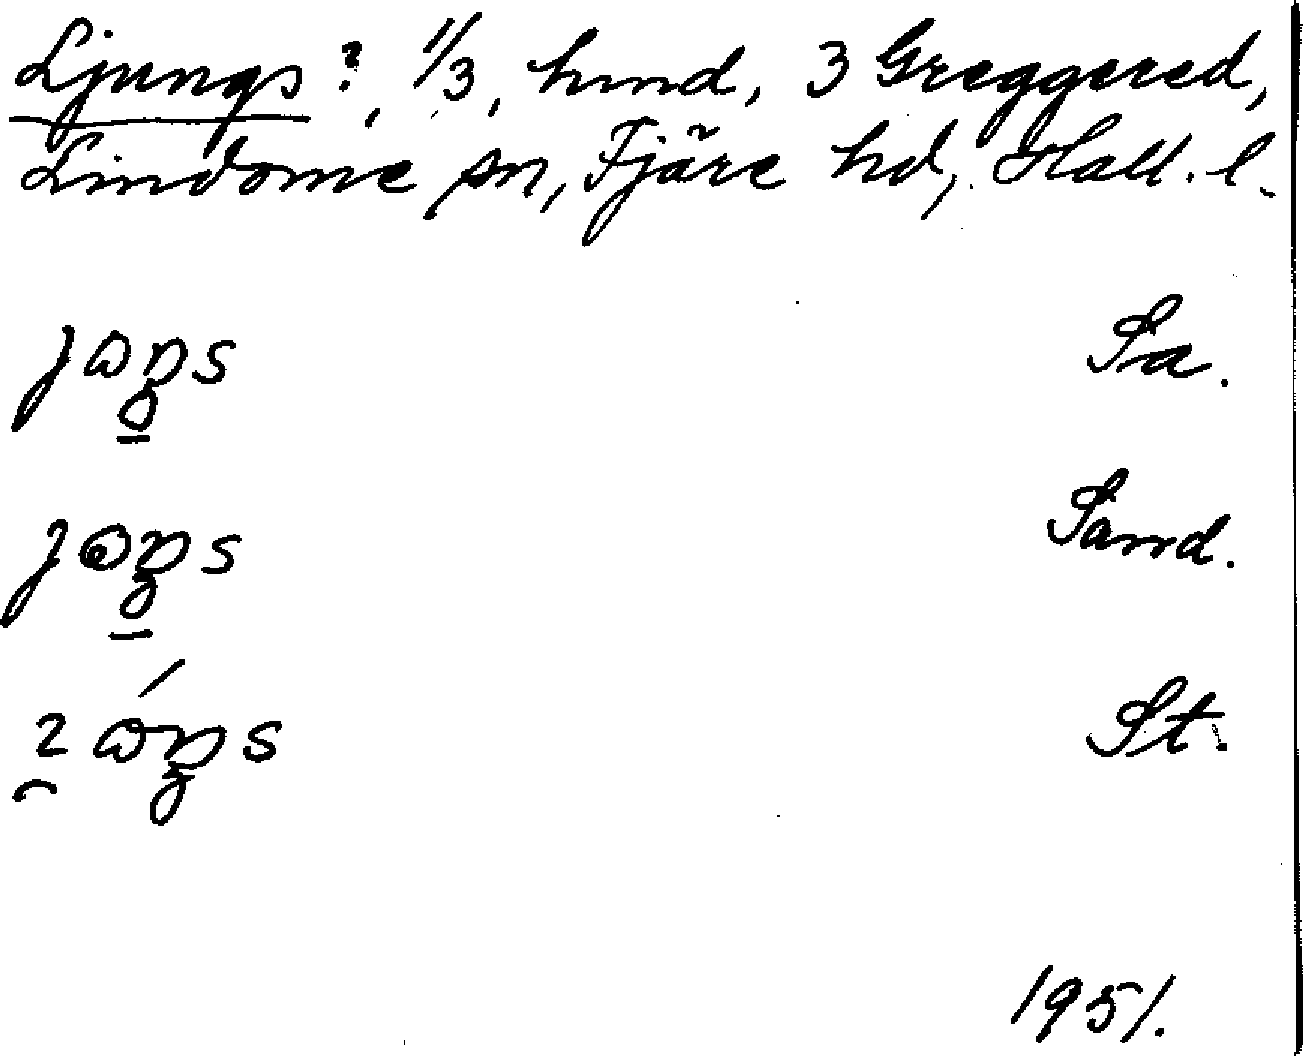 Ljungs?, 1/3, hmd, 3 Greggered,
Lindome sn, Fjäre hd, Hall. l.
Sa.
Sand.
St.
1951.